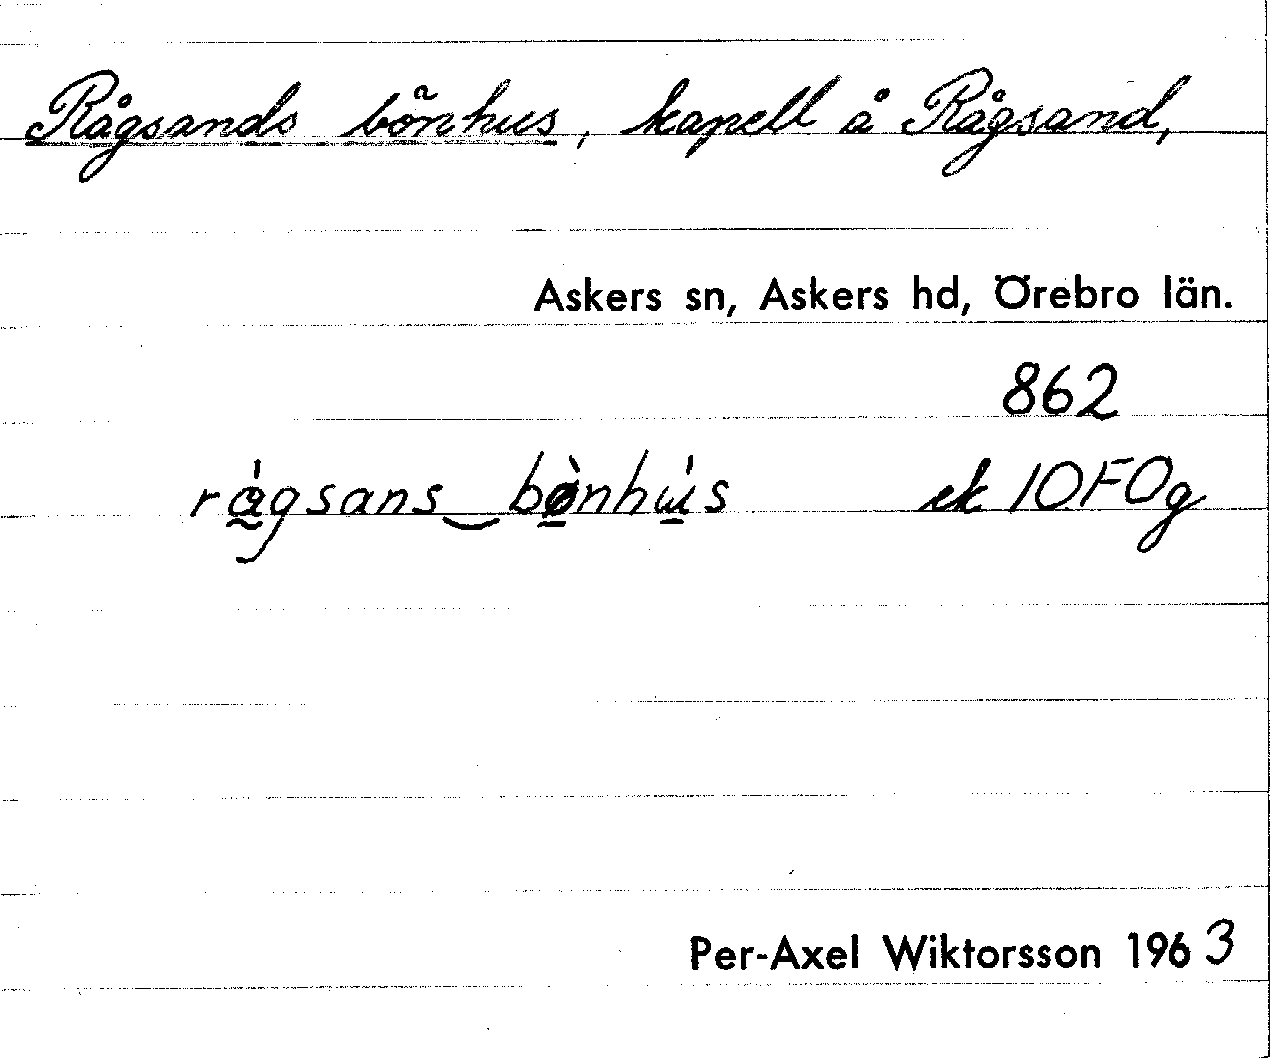 Rågsands bönhus, kapell å Rågsand,
Askers sn, Askers hd, Örebro län.
862
rågsans‿bønhus ek 10F0g
Per-Axel Wiktorsson 1963